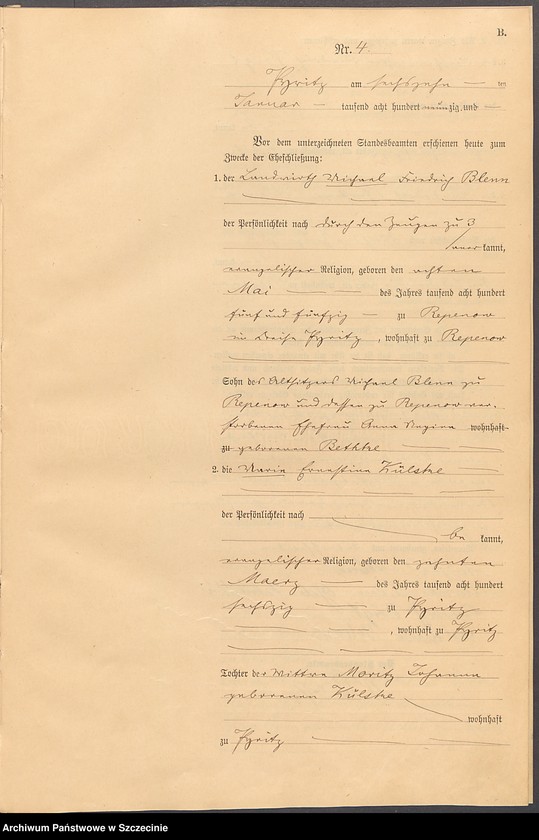 B.
Nr. 4.
Pyritz am sechszehn ten
Januar tausend acht hundert neunzig und
Vor dem unterzeichneten Standesbeamten erschienen heute zum
Zwecke der Eheschließung:
1. der Landwirth Michael Friedrich Blenn
der Persönlichkeit nach durch den Zeugen zu 3
aner kannt,
evangelischer Religion, geboren den achten
Mai des Jahres tausend acht hundert
fünf und fünfzig zu Repenow
im Kreise Pyritz, wohnhaft zu Repenow
Sohn des Altsitzers Michael Blenn zu
Repenow und dessen zu Repenow ver-
storbenen Ehefrau Anna Regina wohnhaft
zu geborenen Bethke
2. die Marie Ernestine Külske
der Persönlichkeit nach
be kannt,
evangelischer Religion, geboren den zehnten
Maerz des Jahres tausend acht hundert
sechszig zu Pyritz
, wohnhaft zu Pyritz
Tochter der Wittwe Moritz Johanna
geborenen Külske
wohnhaft
zu Pyritz
Archiwum Państwowe w Szczecinie